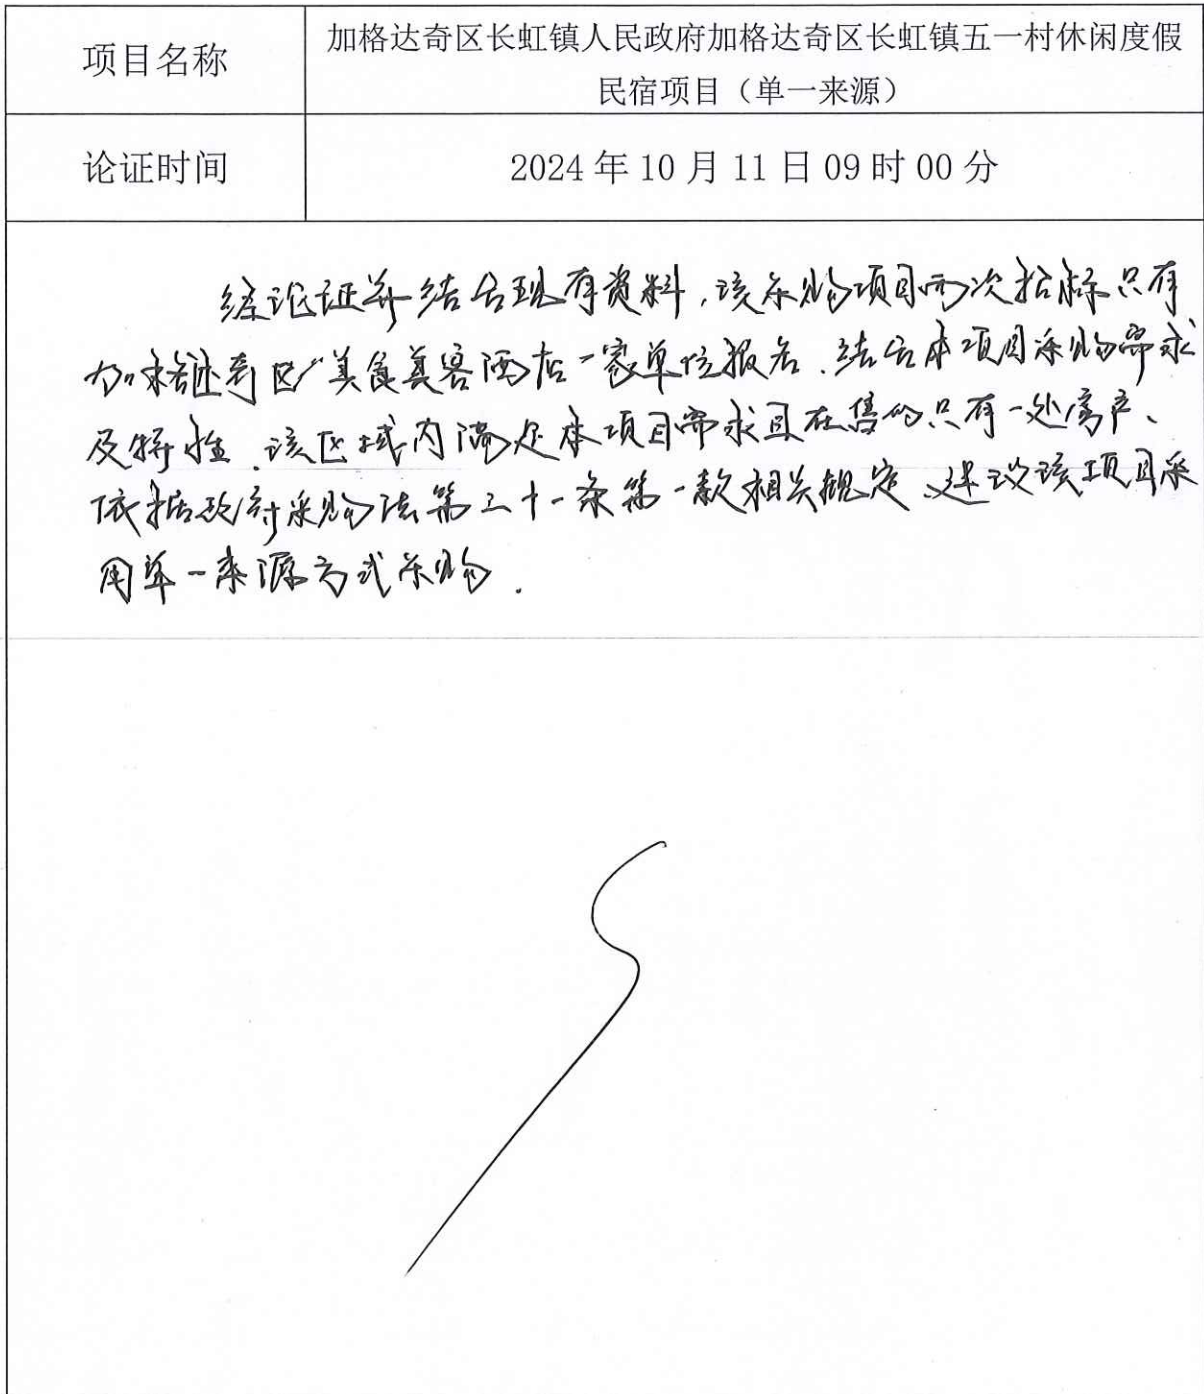 项目名称
加格达奇区长虹镇人民政府加格达奇区长虹镇五一村休闲度假
民宿项目（单一来源）
论证时间
2024年10月11日09时00分
经论证并结合现有资料，该采购项目两次招标只有
加格达奇区美食美客酒店一家单位报名、结合本项目采购需求
及特性、该区域内满足本项目需求且在售的只有一处房产、
依据政府采购法第三十一条第一款相关规定、建议该项目采
用单一来源方式采购.